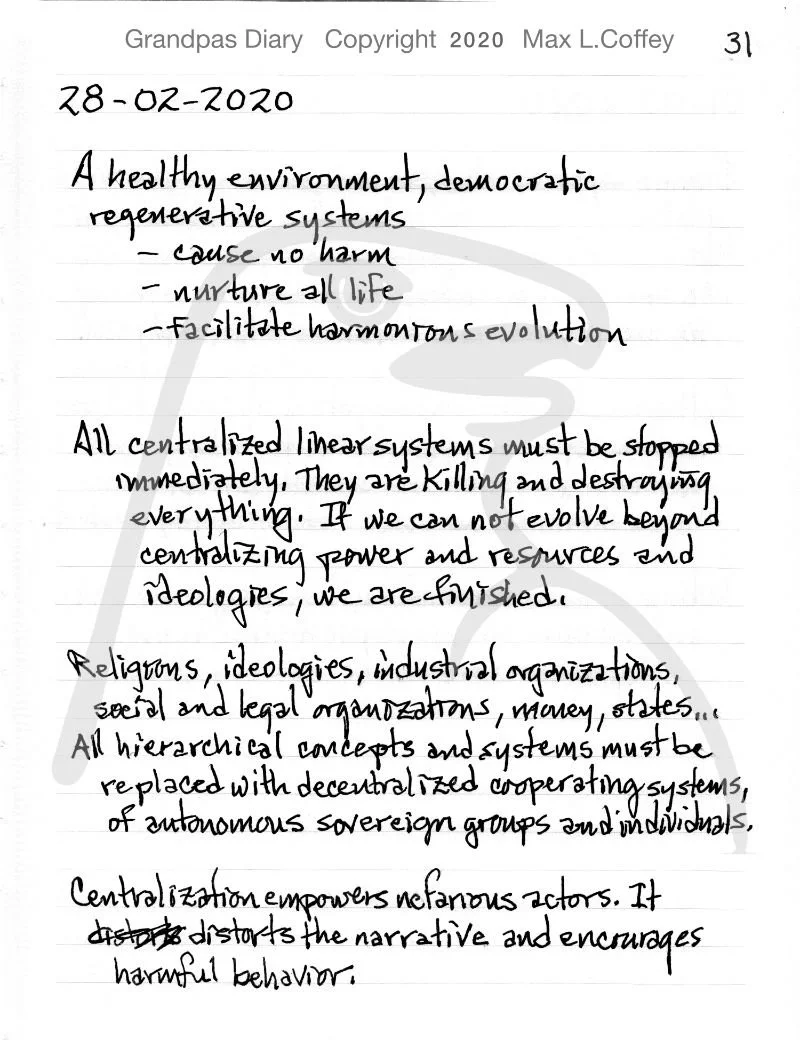 Grandpas Diary Copyright 2020 Max L.Coffey 31
28-02-2020
A healthy environment, democratic
regenerative systems
- cause no harm
- nurture all life
- facilitate harmonious evolution
All centralized linear systems must be stopped
immediately. They are killing and destroying
everything. If we can not evolve beyond
centralizing power and resources and
ideologies, we are finished.
Religions, ideologies, industrial organizations,
social and legal organizations, money, states...
All hierarchical concepts and systems must be
replaced with decentralized cooperating systems,
of autonomous sovereign groups and individuals.
Centralization empowers nefarious actors. It
distorts distorts the narrative and encourages
harmful behavior.